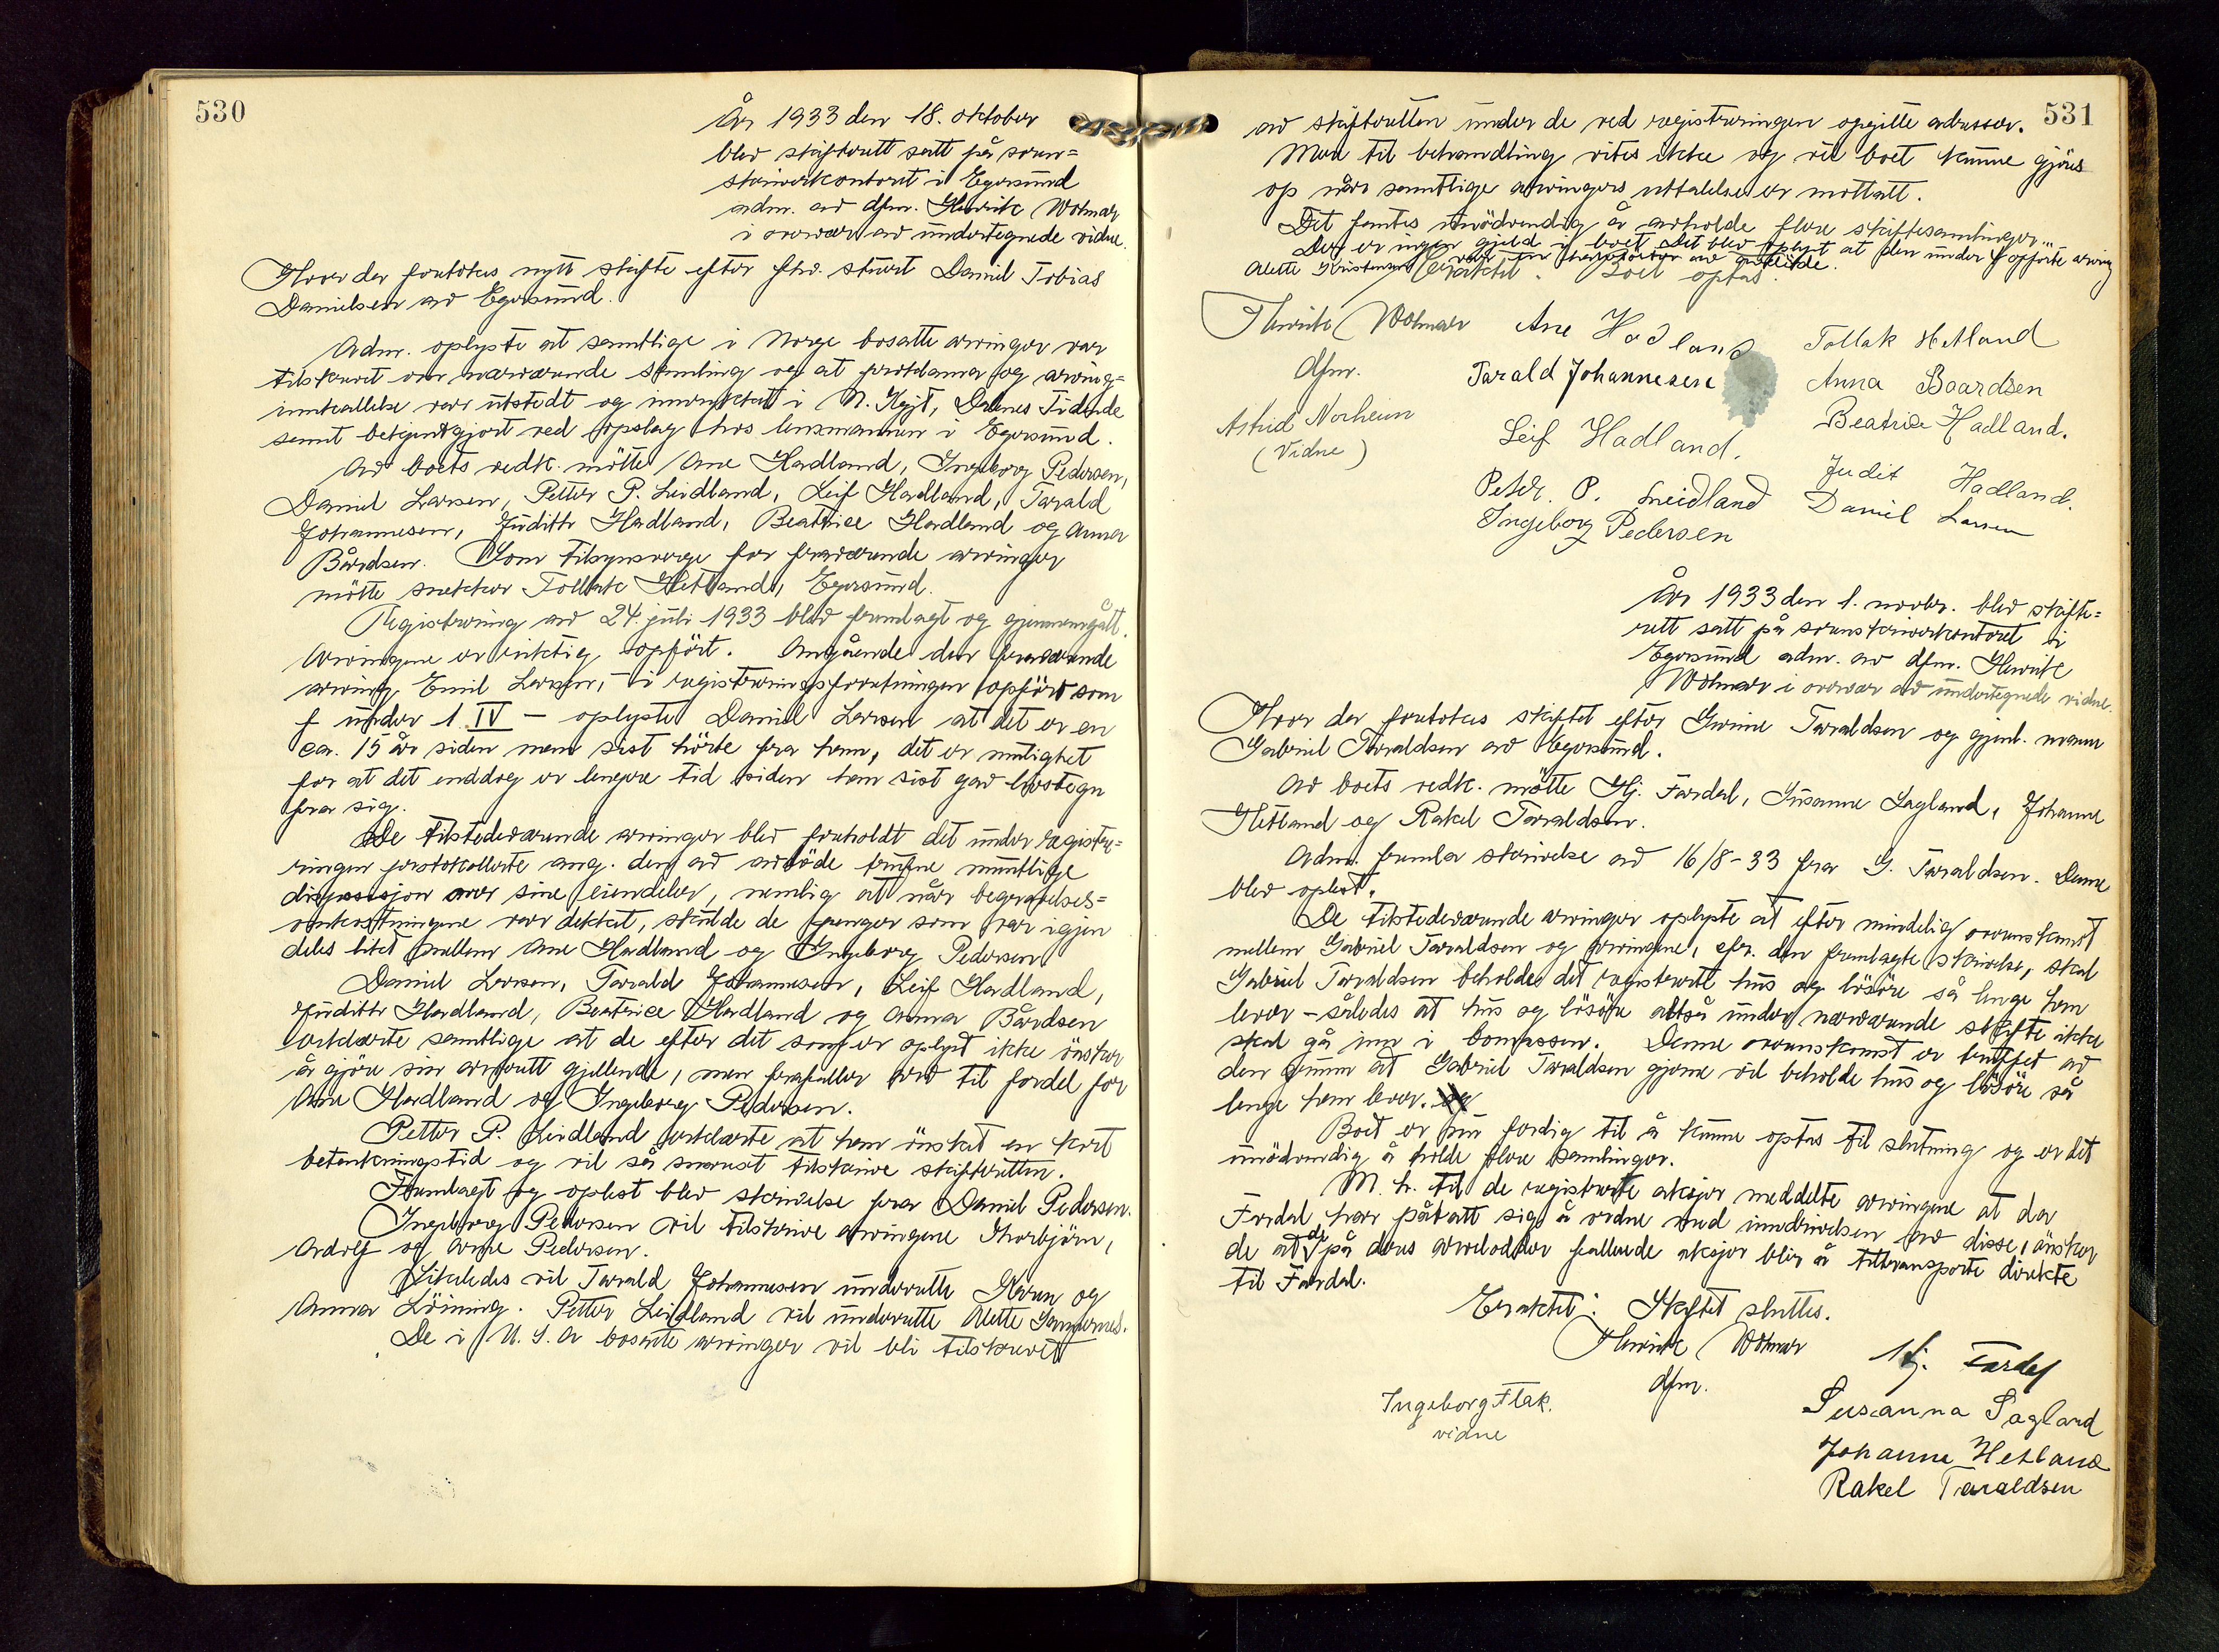 530
År 1933 den 18. oktober
blev skifterett satt på soren=
skriverkontoret i Egersund
adm. av dfm. Henrik Wolmar
i overvær av undertegnede vidne.
Hvor der foretokes nytt skifte efter fhv. stuert Daniel Tobias
Danielsen av Egersund.
Adm. oplyste at samtlige i Norge bosatte arvinger var
tilskrevet om nærværende samling og at proklama og arving=
innkallelse var utstedt og inrykket i N. Kgjt, Dalenes Tidende
samt bekjentgjort ved opslag hos lensmannen i Egersund.
Av boets vedk. møtte Ane Hadland, Ingeborg Pedersen,
Daniel Larsen, Petter P. Leidland, Leif Hadland, Tarald
Johannesen, Judith Hadland, Beatrice Hadland og Anna
Bårdsen. Som tilsynsverge for fraværende arvinger
møtte snekker Tollak Hetland, Egersund.
Registrering av 24. juli 1933 blev fremlagt og gjennemgått.
Arvingene er riktig opført. Angående den fraværende
arving Emil Larsen, – i registreringsforretningen opført som
f under 1 IV – oplyste Daniel Larsen at det er en
ca. 15 år siden man sist hørte fra ham, det er mulighet
for at det enddog er lengere tid siden han sist gav livstegn
fra sig.
De tilstedeværende arvinger blev foreholdt det under registre=
ringen protokollerte ang. den av avdøde trufne muntlige
disposisjon over sine eiendeler, nemlig at når begravelses=
omkostningene var dekket, skulde de penger som var igjen
deles likt mellem Ane Hadland og Ingeborg Pedersen
Daniel Larsen, Tarald Johannesen, Leif Hadland,
Judith Hadland, Beatrice Hadland og Anna Bårdsen
erklærte samtlige at de efter det som er oplyst ikke ønsker
å gjøre sin arverett gjellende, men frafaller arv til fordel for
Ane Hadland og Ingeborg Pedersen.
Petter P. Leidland erklærte at han ønsket en kort
betenkningstid og vil så snarest tilskrive skifteretten.
Fremlagt og oplest blev skrivelse fra Daniel Pedersen.
Ingeborg Pedersen vil tilskrive arvingene Thorbjørn,
Adolf og Arne Pedersen.
Likeledes vil Tarald Johannesen underrette Karen og
Anna Løining. Petter Leidland vil underrette Alette
De i U. S. A bosatte arvinger vil bli tilskrevet
531
av skifteretten under de ved registreringen opgitte adresser.
Men til behandling vites ikke og vil boet kunne gjøres
op når samtlige arvingers uttalelse er mottatt.
Det fantes unødvendig å avholde flere skiftesamlinger.
Der er ingen gjeld i boet. Det blev oplyst at den under f opførte arving
Alette Kristensen var en av avdøde.
Eraktet: Boet optas.
Henrik Wolmar
dfm.
Astrid Norheim
(Vidne)
Ane Hadland
Tarald Johannesen
Leif Hadland.
Peter. P. Leidland
Ingeborg Pedersen
Tollak Hetland
Anna Baardsen
Beatrice Hadland.
Judit Hadland.
Daniel Larsen
År 1933 den 1. novbr. blev skifte=
rett satt på sorenskriverkontoret i
Egersund adm. av dfm. Henrik
Wolmar i overvær av undertegnede vidne.
Hvor der foretokes skiftet efter Gurine Taraldsen og gjenl. mann
Gabriel Taraldsen av Egersund.
Av boets vedk. møtte Hj. Fardal, Susanne Sagland, Johanne
Hetland og Rakel Taraldsen.
Adm. fremla skrivelse av 16/8-33 fra G. Taraldsen. Denne
blev oplest.
De tilstedeværende arvinger oplyste at efter mindelig overenskomst
mellem Gabriel Taraldsen og arvingene, cfr. den fremlagte skrivelse, skal
Gabriel Taraldsen beholde det registrerte hus og løsøre så lenge han
lever – således at hus og løsøre altså under nærværende skifte ikke
skal gå inn i bomassen. Denne overenskomst er truffet av
den grunn at Gabriel Taraldsen gjerne vil beholde hus og løsøre så
lenge han lever.
Boet er nu ferdig til å kunne optas til slutning og er det
unødvendig å holde flere samlinger.
M. h. til de registrerte aksjer meddelte arvingene at da
Fardal har påtatt sig å ordne med inndrivelsen av disse, ønsker
de at de på deres arvelodder fallende aksjer blir å transportere direkte
til Fardal.
Eraktet: Skiftet sluttes.
Henrik Wolmar
dfm.
Ingeborg Flak.
vidne
Hj. Fardal
Susanna Sagland
Johanna Hetland
Rakel Taraldsen